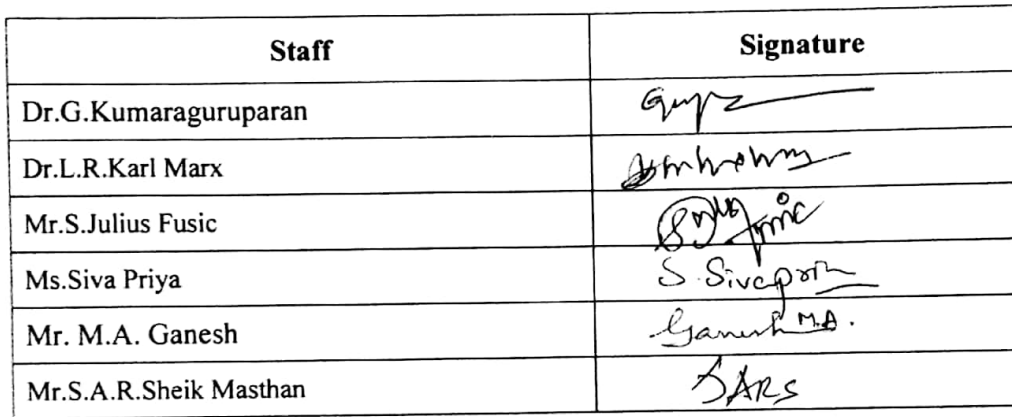 Staff Signature
Dr.G.Kumaraguruparan
Dr.L.R.Karl Marx
Mr.S.Julius Fusic
Ms.Siva Priya S. Sivapriya
Mr. M.A. Ganesh Ganesh M.A.
Mr.S.A.R.Sheik Masthan SARS